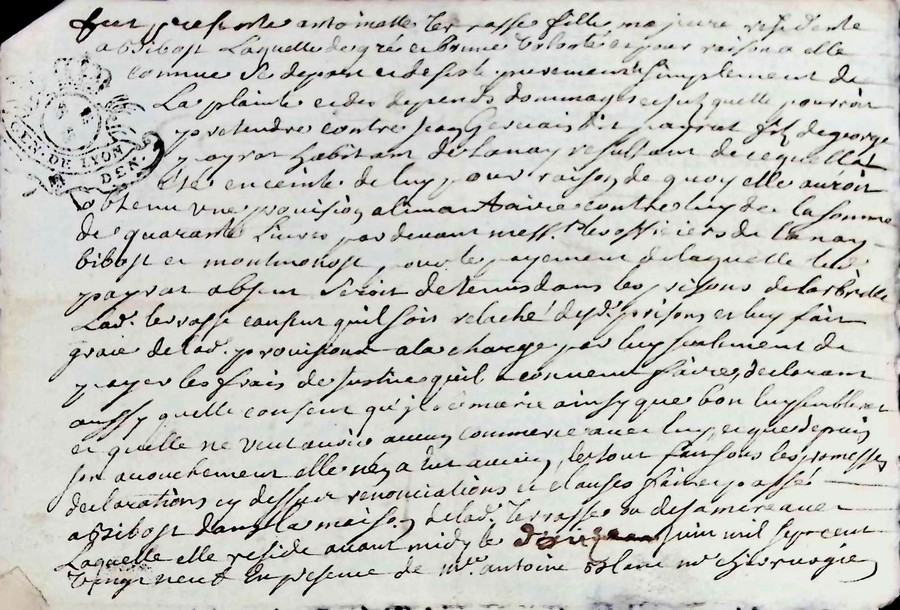 fut presente antoinette terrasse fille majeure residente
a Bibost Laquelle de gré et bonne volonté et pour raison a elle
connue Se depart et desiste purement et simplement de
La plainte et des depends dommages quelle pourroit
pretendre contre Jean Gervais dit payrat fils de george
payrat habitant de Lanay resultant de ce quelle
été enceinte de luy, pour raison de quoy elle auroit
obtenu une provision alimantaire contre luy de la somme
de quarante Livres par devant mess.rs les officiers de Lanay
bibost et montmonost, pour le payement de laquelle led
payrat absent Seroit detenu dans les prisons de Larbrelle
Lad. terrasse consent quil soit relaché desd. prisons et luy fait
graie de lad. provision a la charge par luy seulement de
payer les frais de justice quil a convenu faire, declarant
aussy quelle consent qu'il se marie ainsy que bon luy semblera
et quelle ne veut avoir aucun commerce avec luy, et que depuis
son acouchement elle n'en a eu aucun, le tout fait sous les promesses
declarations cy dessus renonciations et clauses faire et passé
a Bibost dans la maison de lad. terrasse ou de sa mere avec
Laquelle elle reside avant midy le juin mil sept cent
vingt neuf En presence de m.re antoine blanc m.e chirurgien
GEN. DE LYON
DEN.